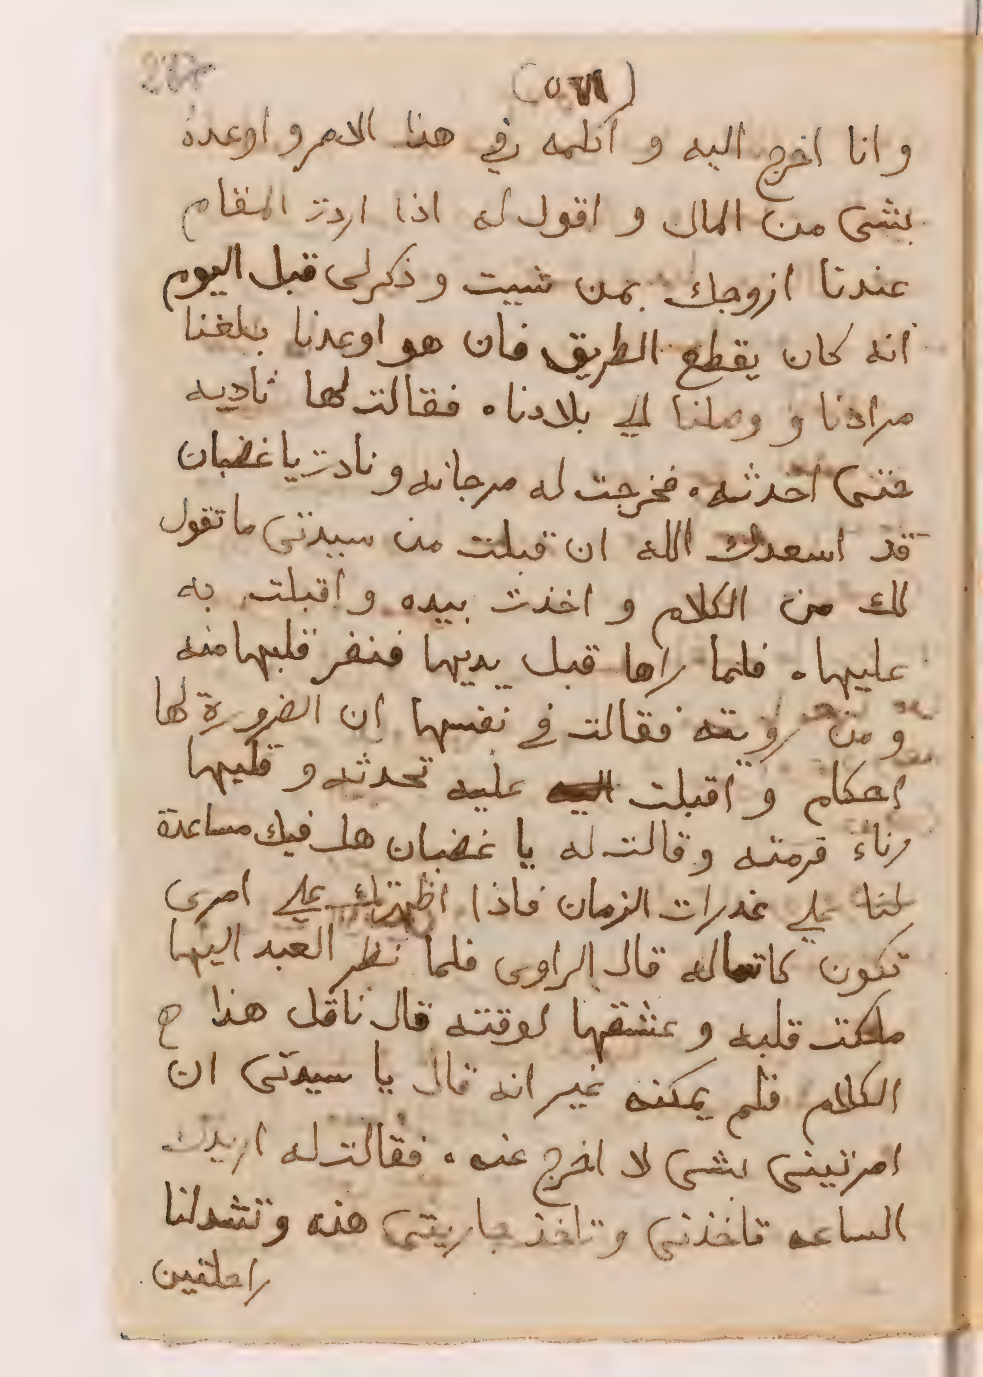 وانا اخرج اليه و اكلمه في هذا الامر و اوعده
بشى من المال و اقول له اذا اردت المقام
عندنا ازوجك بمن شيت و ذكر لى قبل اليوم
انه كان يقطع الطريق فان هو اوعدنا بلغنا
مرادنا و وصلنا الي بلادنا. فقالت لها
حتى احدثه. فخرجت له مرجانه و نادت يا غضبان
قد اسعدك الله ان قبلت من سيدتى ما تقول
لك من الكلام و اخذت بيده و اقبلت به
عليها. فلما راها قبل يديها فنفر قلبها منه
و من رويته فقالت في نفسها ان الضرورة لها
احكام و اقبلت عليه تحدثه و قلبها
و قالت له يا غضبان هل فيك مساعدة
لنا علي غدرات الزمان فاذا اظهرتك علي امرى
تكون قال الراوى فلما نظر العبد اليها
ملكت قلبه و عشقها لوقته قال ناقل هذا
الكلام فلم يمكنه غير انه قال يا سيدتى ان
امرتينى بشى لا اخرج عنه. فقالت له اريدك
الساعه تاخذنى و تاخذ جاريتى هذه و تشد لنا
راحلتين